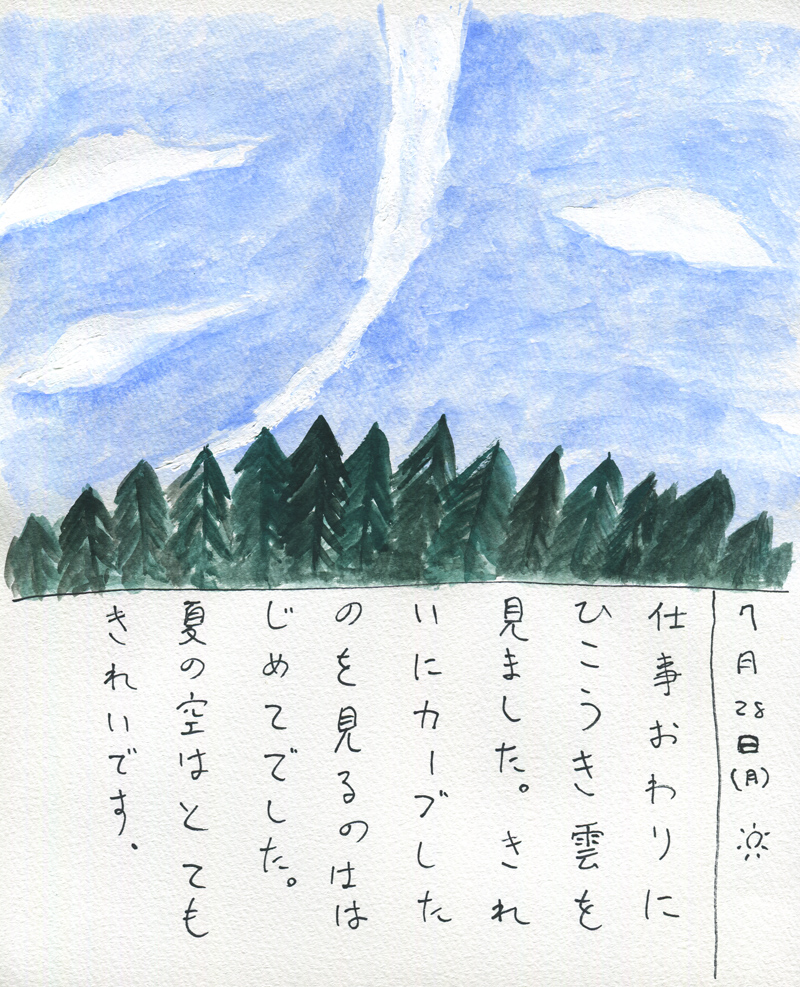 7月28日(月)
仕事おわりに
ひこうき雲を
見ました。きれ
いにカーブした
のを見るのはは
じめてでした。
夏の空はとても
きれいです.